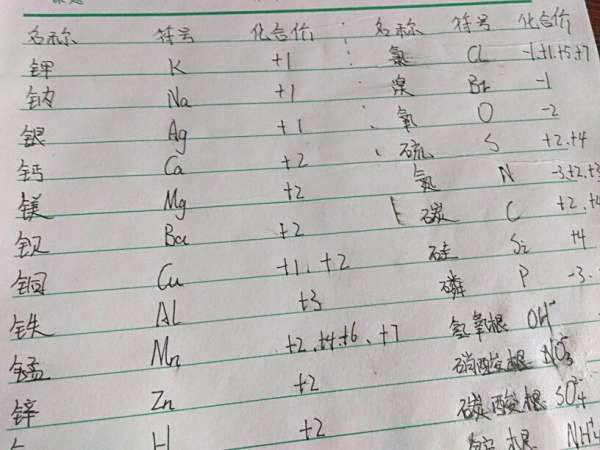 名称 符号 化合价 名称 符号 化合价
钾 K +1 氯 Cl -1.+1.+5.+7
钠 Na +1 溴 Br -1
银 Ag +1 氧 O -2
钙 Ca +2 硫 S +2.+4
镁 Mg +2 氮 N -3.+2.+3
钡 Ba +2 碳 C +2.+4
铜 Cu +1、+2 硅 Si +4
铁 AL +3 磷 P -3.
锰 Mn +2.+4.+6、+7 氢氧根 OH⁻
锌 Zn +2 硝酸根 NO₃⁻
H +2 碳酸根 SO₄⁻
根 NH⁺₄